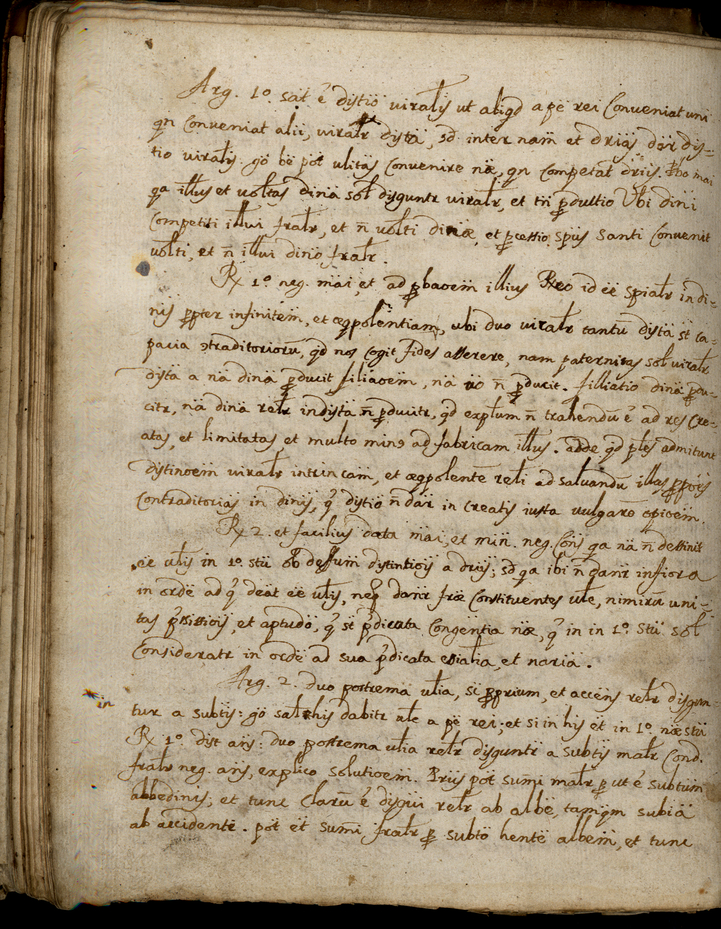 Arg. 1º sat ē distio viralis ut aliqd a pē rei Conveniat uni
qn Conveniat alii, viralr dista, sd inter nam et driās dār dis=
tio viralis: gō bē pōt ulitās Convenire næ, qn competat driīs. Pba mai
qa illius et voltas dinā sōl disguntr viralr, et tn pductio Vbi dini
Competit illui fralr, et n̄ volti dinæ, et pcessio spūs Santi Convenit
volti, et n̄ illui dino fralr.
Rx 1º neg. mai, et ad pbaoem illius Rxeo id eē spialr in di-
nis ppter infinitem, et æqpolentiam, ubi duo viralr tantū dista st ca-
pacia ɔtraditorioru, qd nos cogit fides asserere, nam paternitas sol viralr
dista a nā dinā pducit filiaoem, nā vo n̄ pducit. filliatio dinā pdu-
citr, nā dinā relr indista n̄ pducitr, qd explum n̄ trahendu ē ad res Cre-
atas, et limitatas et multo minɔ ad fabricam illius. adde qd ples admitunt
distinoem viralr intrincam, et æqpolente reli ad salvandu illas ppōis
Contraditorias in dinis, q distio n̄ dār in Creatis iusta vulgare opioem.
Rx 2. et facilius data mai, et min. neg. Cons qa nā n̄ dessinit
eē ulis in 1º stū ob deffum distintiois a driis; sd qa ibi n̄ dānr infiora
in orde ad q deāt eē ulis, neq dānr fræ Constituentes ule, nimiru uni-
tas pssitiois, et aptudo, q st pdicata Congentia næ, q in in 1º stū sol
Consideratr in orde ad sua pdicata essialia, et naria.
Arg. 2. duo postrema ulia, st pprium, et accens relr disgun-
tur a subtis: gō salr in his dabitr ule a pē rei; et si in his et in 1º næ stū
Rx 1º dist ans: duo postrema ulia relr disguntr a subtis malr Cond.
fralr neg. ans, explico solutioem. Priis pot sumi malr p ut ē subtum
abbedinis, et tunc Clarū ē disgui relr ab albē, tamqm subiā
ab accidente. pōt et sumi fralr p subto hente albem, et tunc